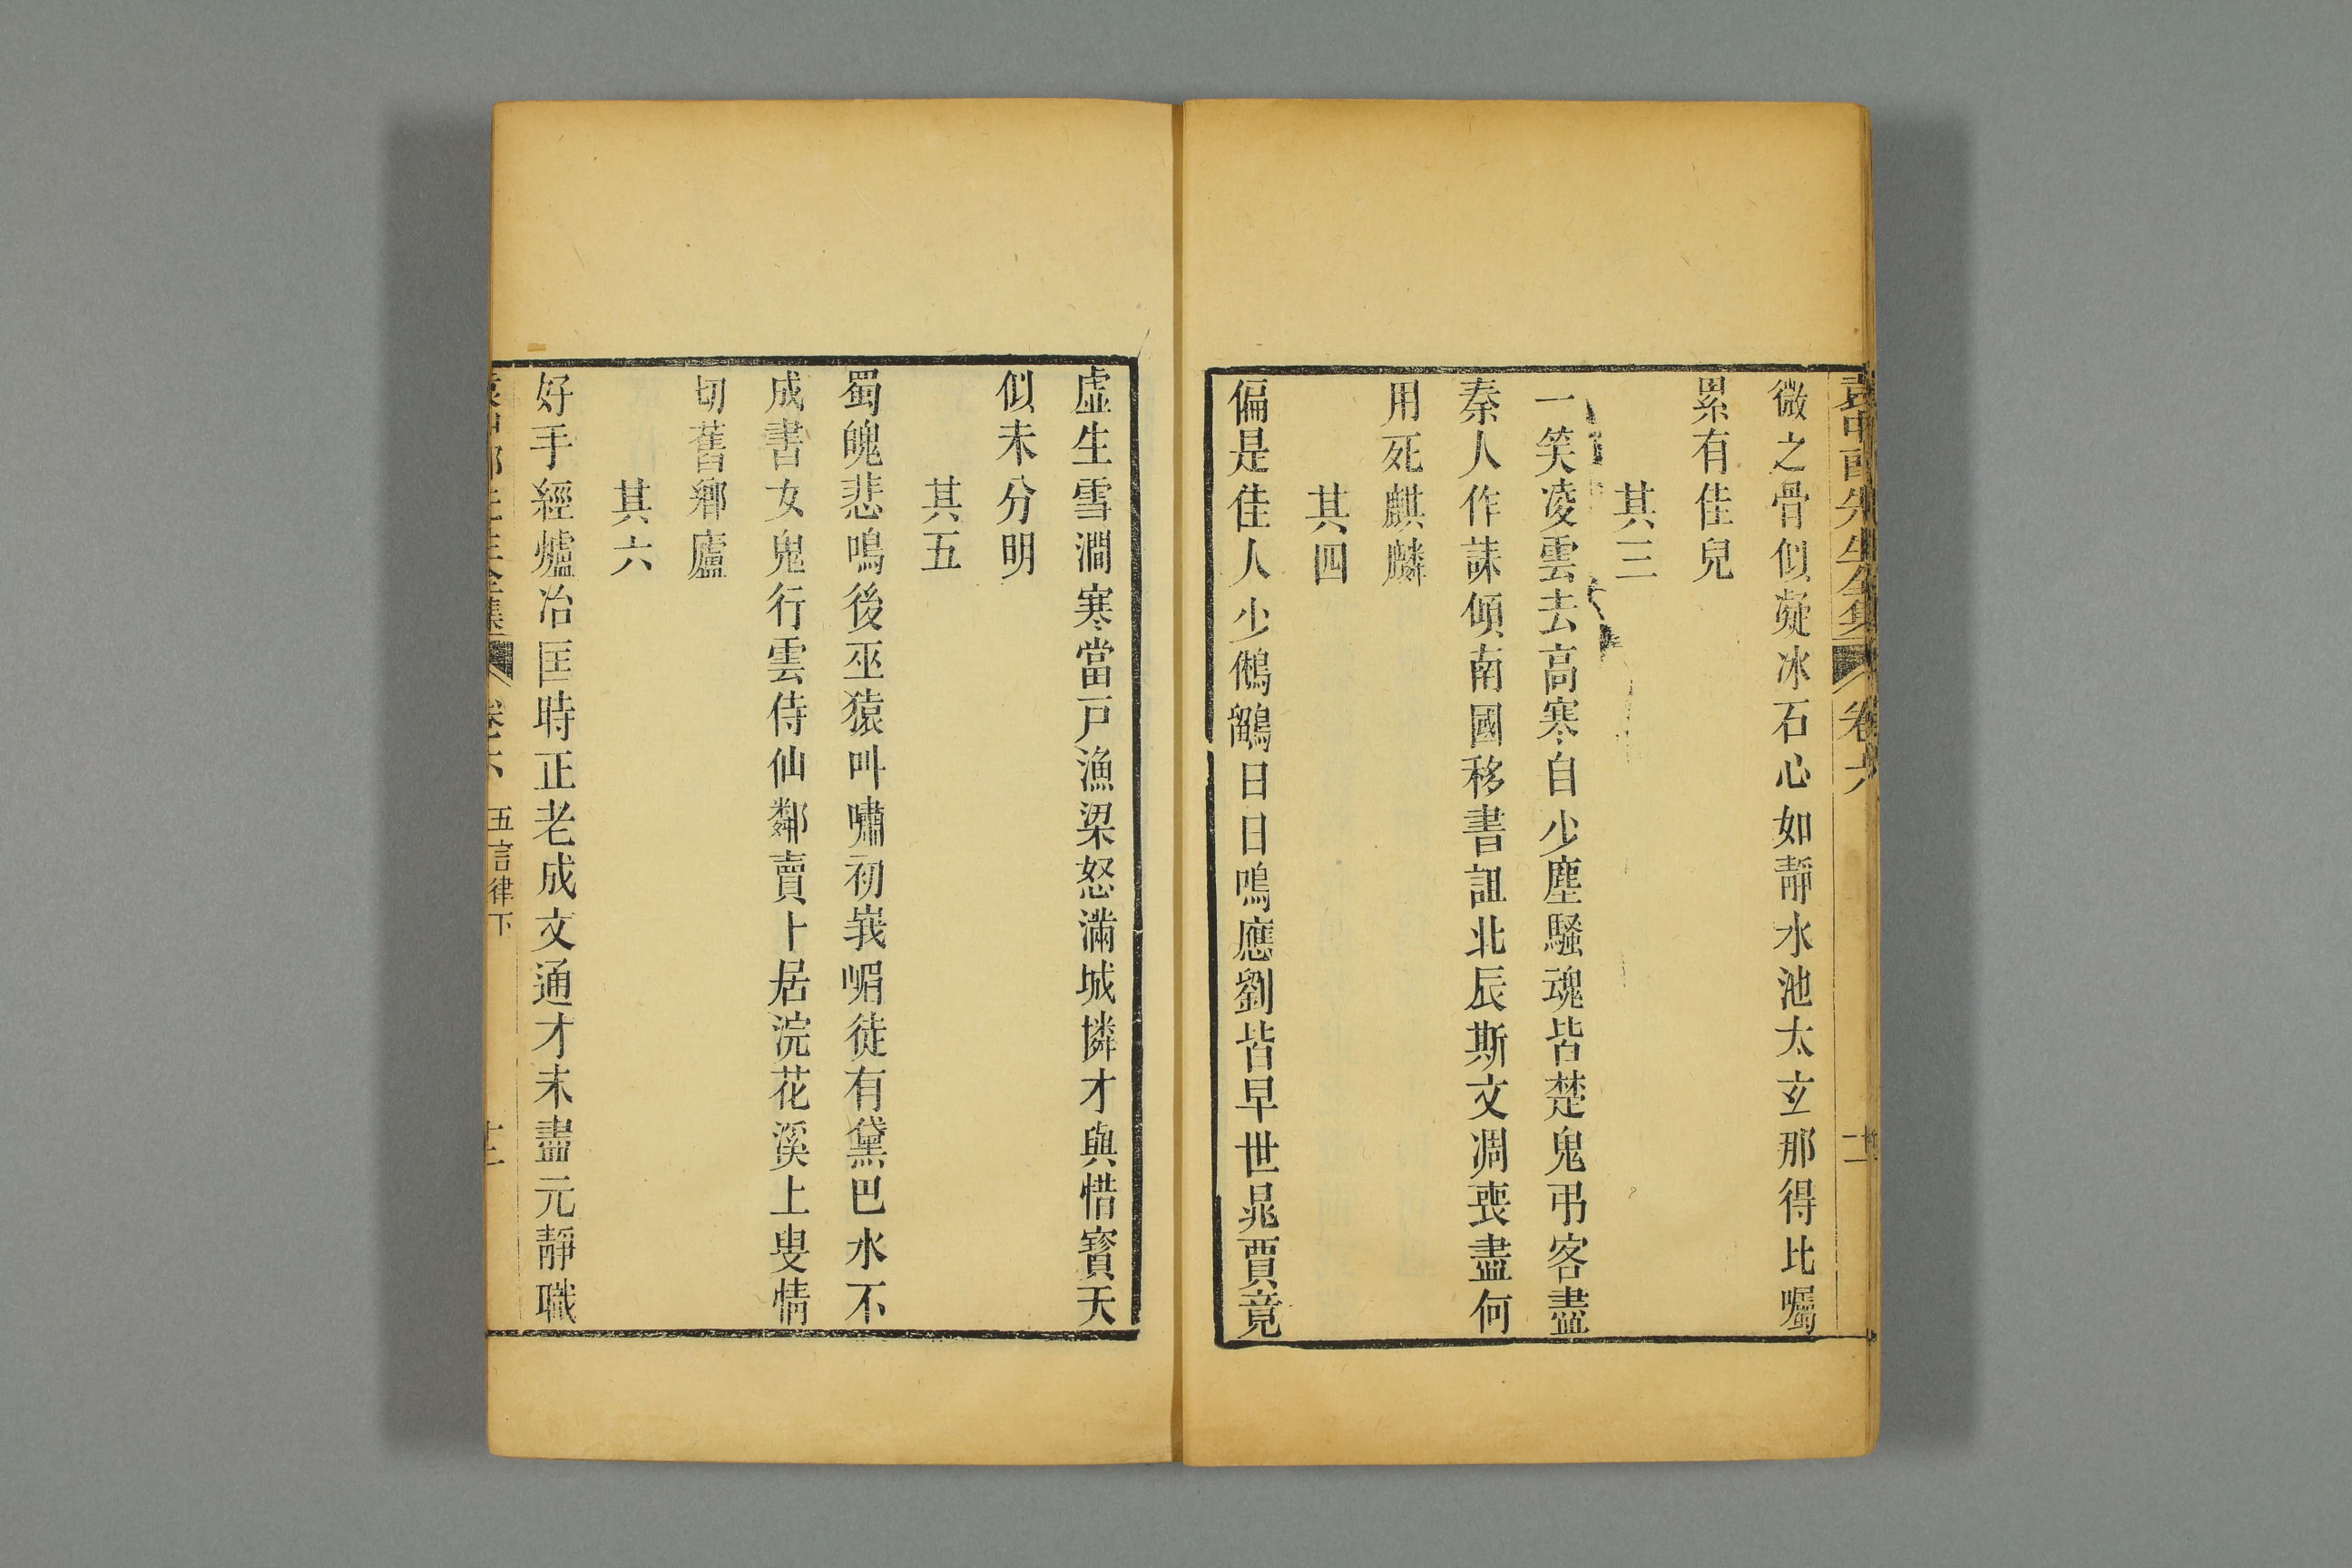 袁中郎先生全集 卷六
微之骨似凝冰石心如靜水池太玄那得比囑
累有佳兒
其三
一笑凌雲去高寒自少塵騷魂皆楚鬼弔客盡
秦人作誄傾南國移書詛北辰斯文凋喪盡何
用死麒麟
其四
偏是佳人少鵂鶹日日鳴應劉皆早世晁賈竟
虛生雪澗寒當戸漁梁怒滿城憐才與惜寳天
似未分明
其五
蜀魄悲鳴後巫猿叫嘯初峩嵋徒有黛巴水不
成書女鬼行雲侍仙鄰賣卜居浣花溪上叟情
切舊鄉廬
其六
好手經爐冶匡時正老成文通才未盡元靜職
袁中郎先生全集 卷六 五言律下